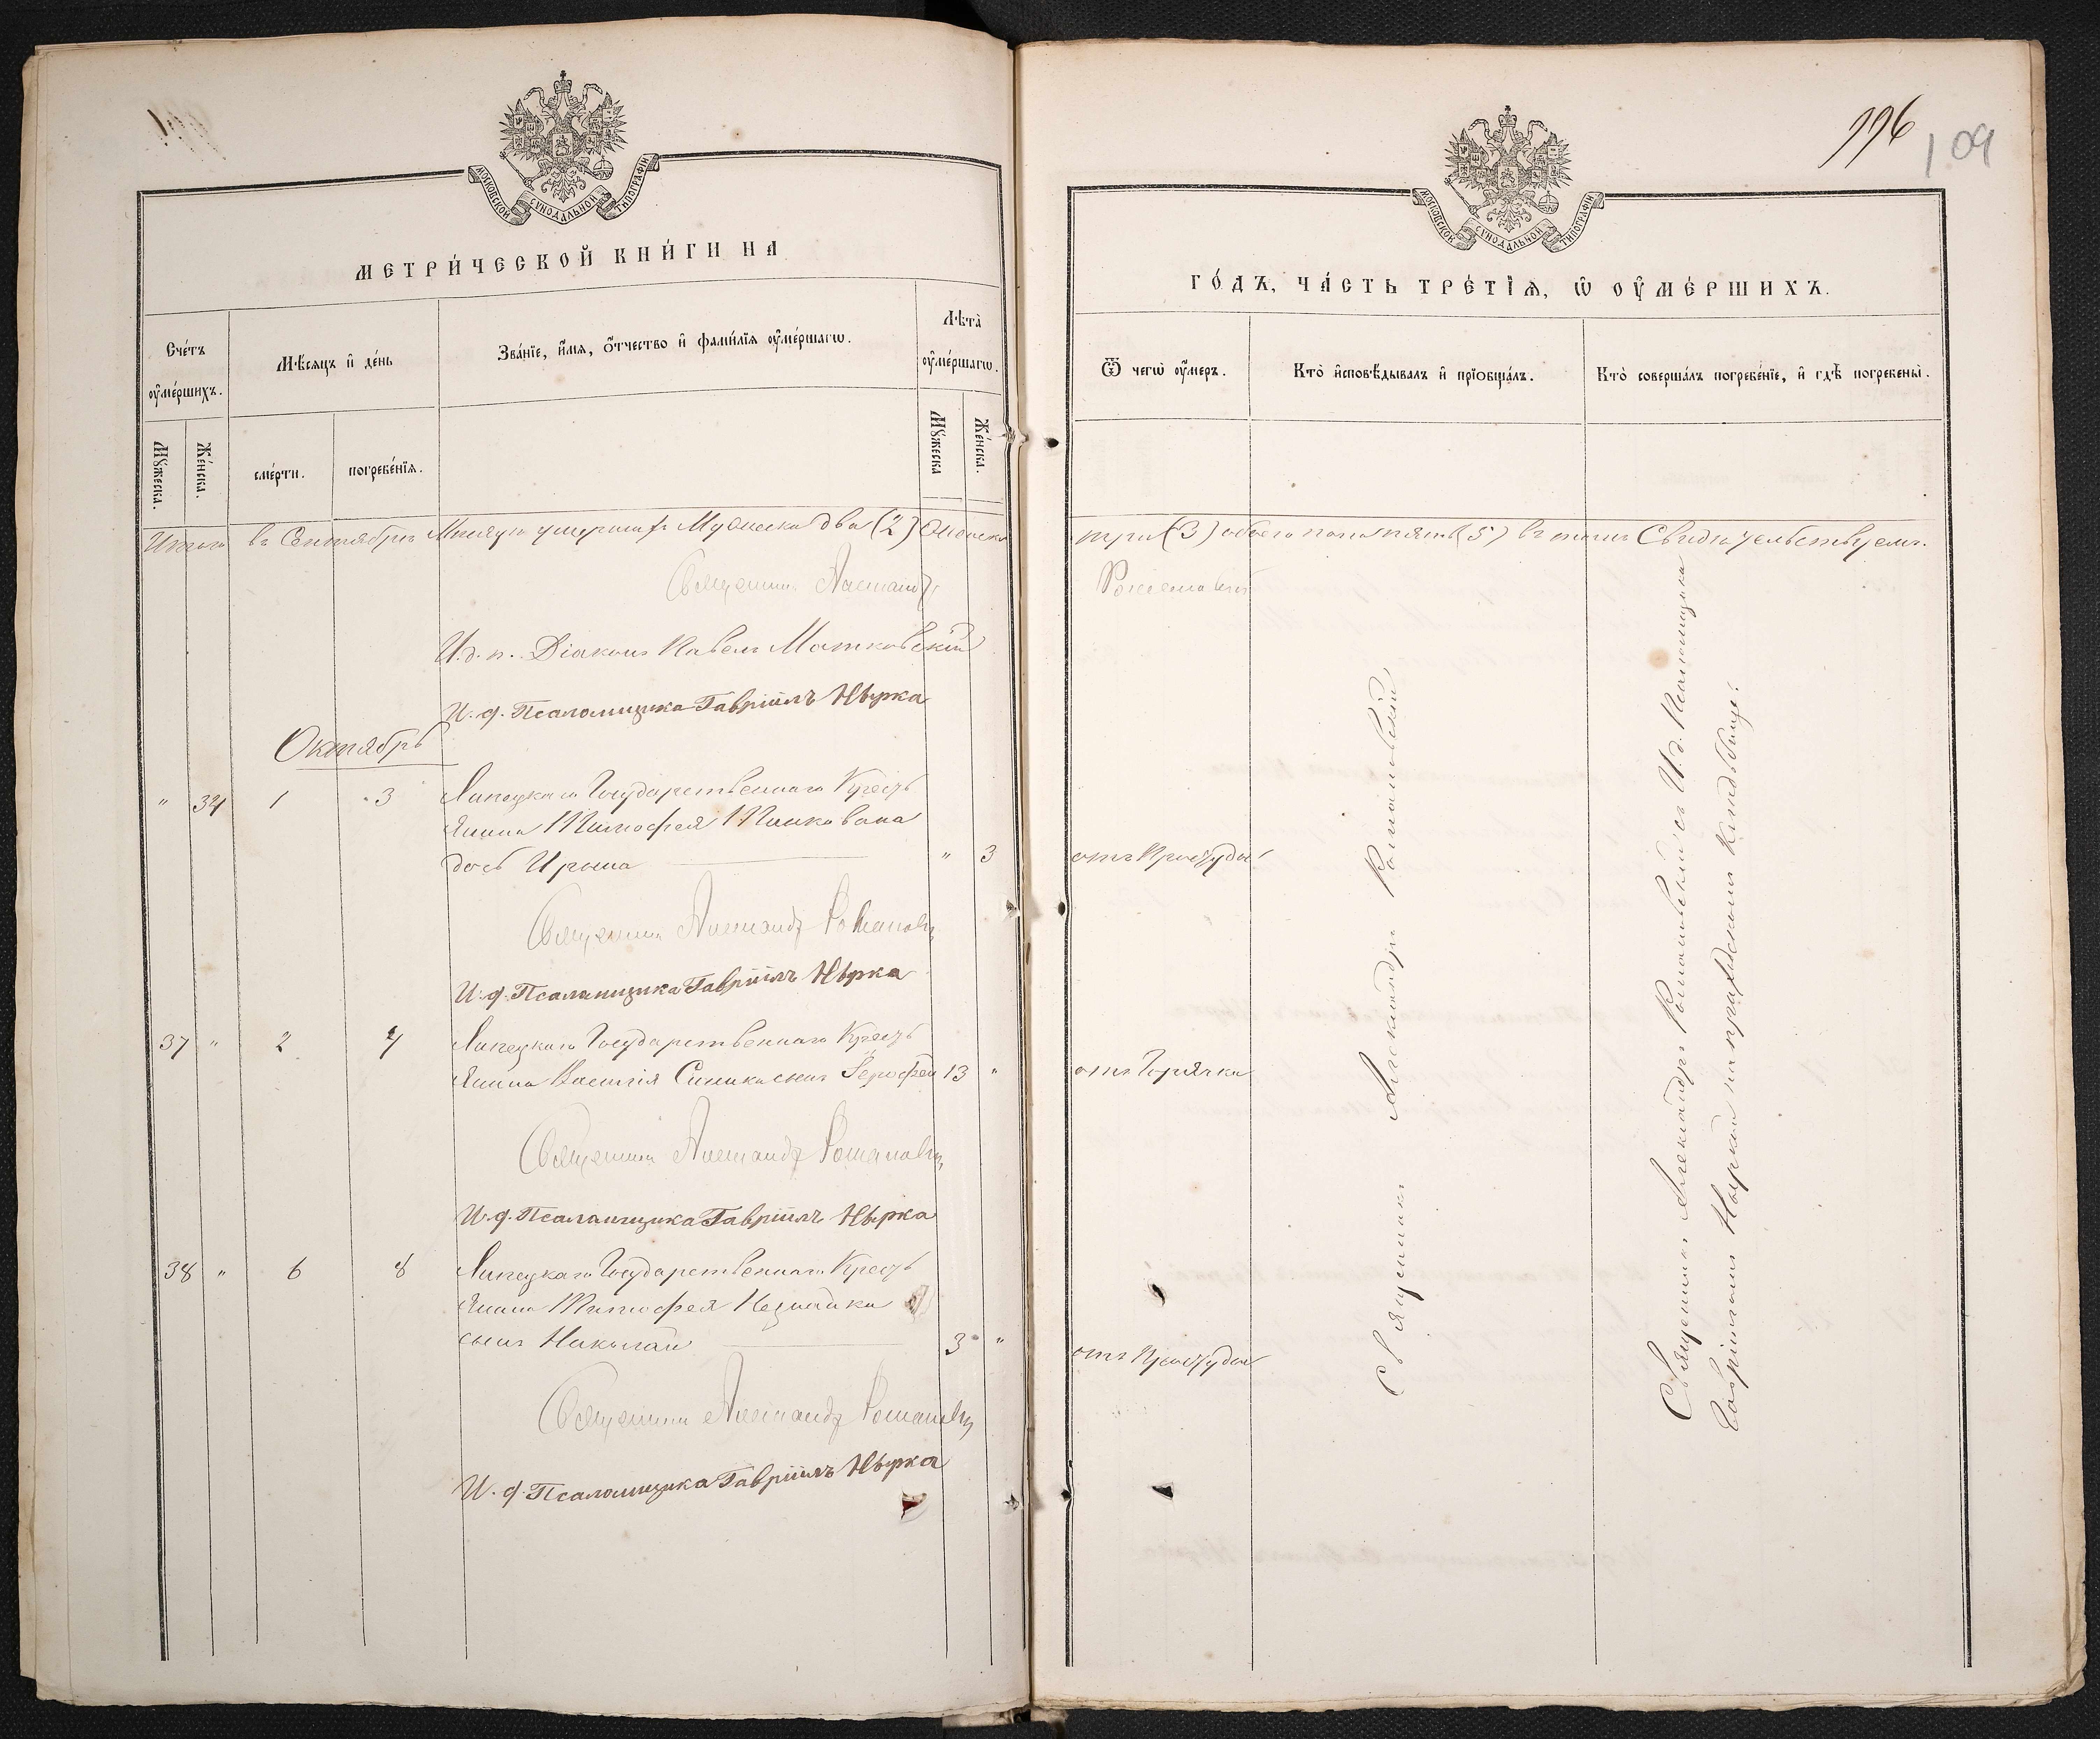 МОСКОВСКОЙ СѴНОДАЛЬНОЙ ТИПОГРАФІИ
МЕТРИ́ЧЕСКОЙ КНИ́ГИ НА
Сче́тъ ᲂу҆ме́ршихъ.
Мѣ́сяцъ и҆ де́нь
Зва́нїе, и҆́мя, ѻ҆́тчество и҆ фами́лїя ᲂу҆ме́ршагѡ.
Лѣ́та ᲂу҆ме́ршагѡ.
Мꙋ́жеска.
Же́нска.
сме́рти.
погребе́нїя.
Мꙋ́жеска
Же́нска.
Итого въ Сентябрѣ Мѣсяцѣ умершихъ Мужеска два (2) Женска
Священникъ Александръ
И. д. п. Діаконъ Павелъ Матковскій
И. д. Псаломщика Гавріилъ Нырка
Октябрь
" 34 1 3 Липецкаго Государственнаго Кресть
янина Тимофея
дочь Ирина " 3
Священникъ Александръ Романовск
И. д. Псаломщика Гавріилъ Нырка
37 " 2 4 Липецкаго Государственнаго Кресть
янина Василія Синика сынъ Ѳерофей 13 "
Священникъ Александръ Романовск
И. д. Псаломщика Гавріилъ Нырка
38 " 6 8 Липецкаго Государственнаго Кресть
янина Тимофея Незнайки
сынъ Николай 3 "
Священникъ Александръ Романовск
И. д. Псаломщика Гавріилъ Нырка
996
109
МОСКОВСКОЙ СѴНОДАЛЬНОЙ ТИПОГРАФІИ
ГО́ДЪ, ЧА́СТЬ ТРЕ́ТЇѦ, Ѡ҆ ОУ҆МЕ́РШИХЪ.
Ѿ чегѡ̀ ᲂу҆́меръ.
Кто̀ и҆сповѣ́дывалъ и҆ прїобща́лъ.
Кто̀ соверша́лъ погребе́нїе, и҆ гдѣ̀ погребены̀.
три (3) обоего пола пять (5) въ томъ Свидѣтельствуемъ.
Романовскій
отъ Простуды
отъ Горячки
отъ Простуды
Священникъ Александръ Романовскій
Священникъ Александръ Романовскій съ И. д. Псаломщика
Гавріиломъ Ныркой на приходскомъ кладбищѣ.